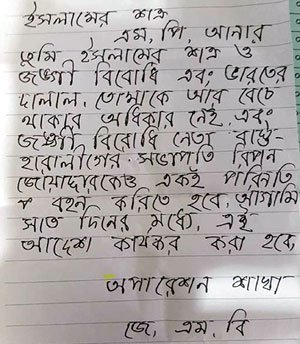 ইসলামের শত্র
এম, পি, আনার
তুমি ইসলামের শত্র ও
জঙ্গী বিরোধি এবং ভারতের
দালাল, তোমাকে আর বেচে
থাকার অধিকার নেই, এবং
জঙ্গী বিরোধি নেতা
হারালীগের সভাপতি রিপন
জোয়াদ্দারকেও একই পরিনতি
বহন করিতে হবে, আগামি
সাত দিনের মধ্যে, এই
আদেশ কার্যকর করা হবে,
অপারেশন শাখা
জে, এম, বি